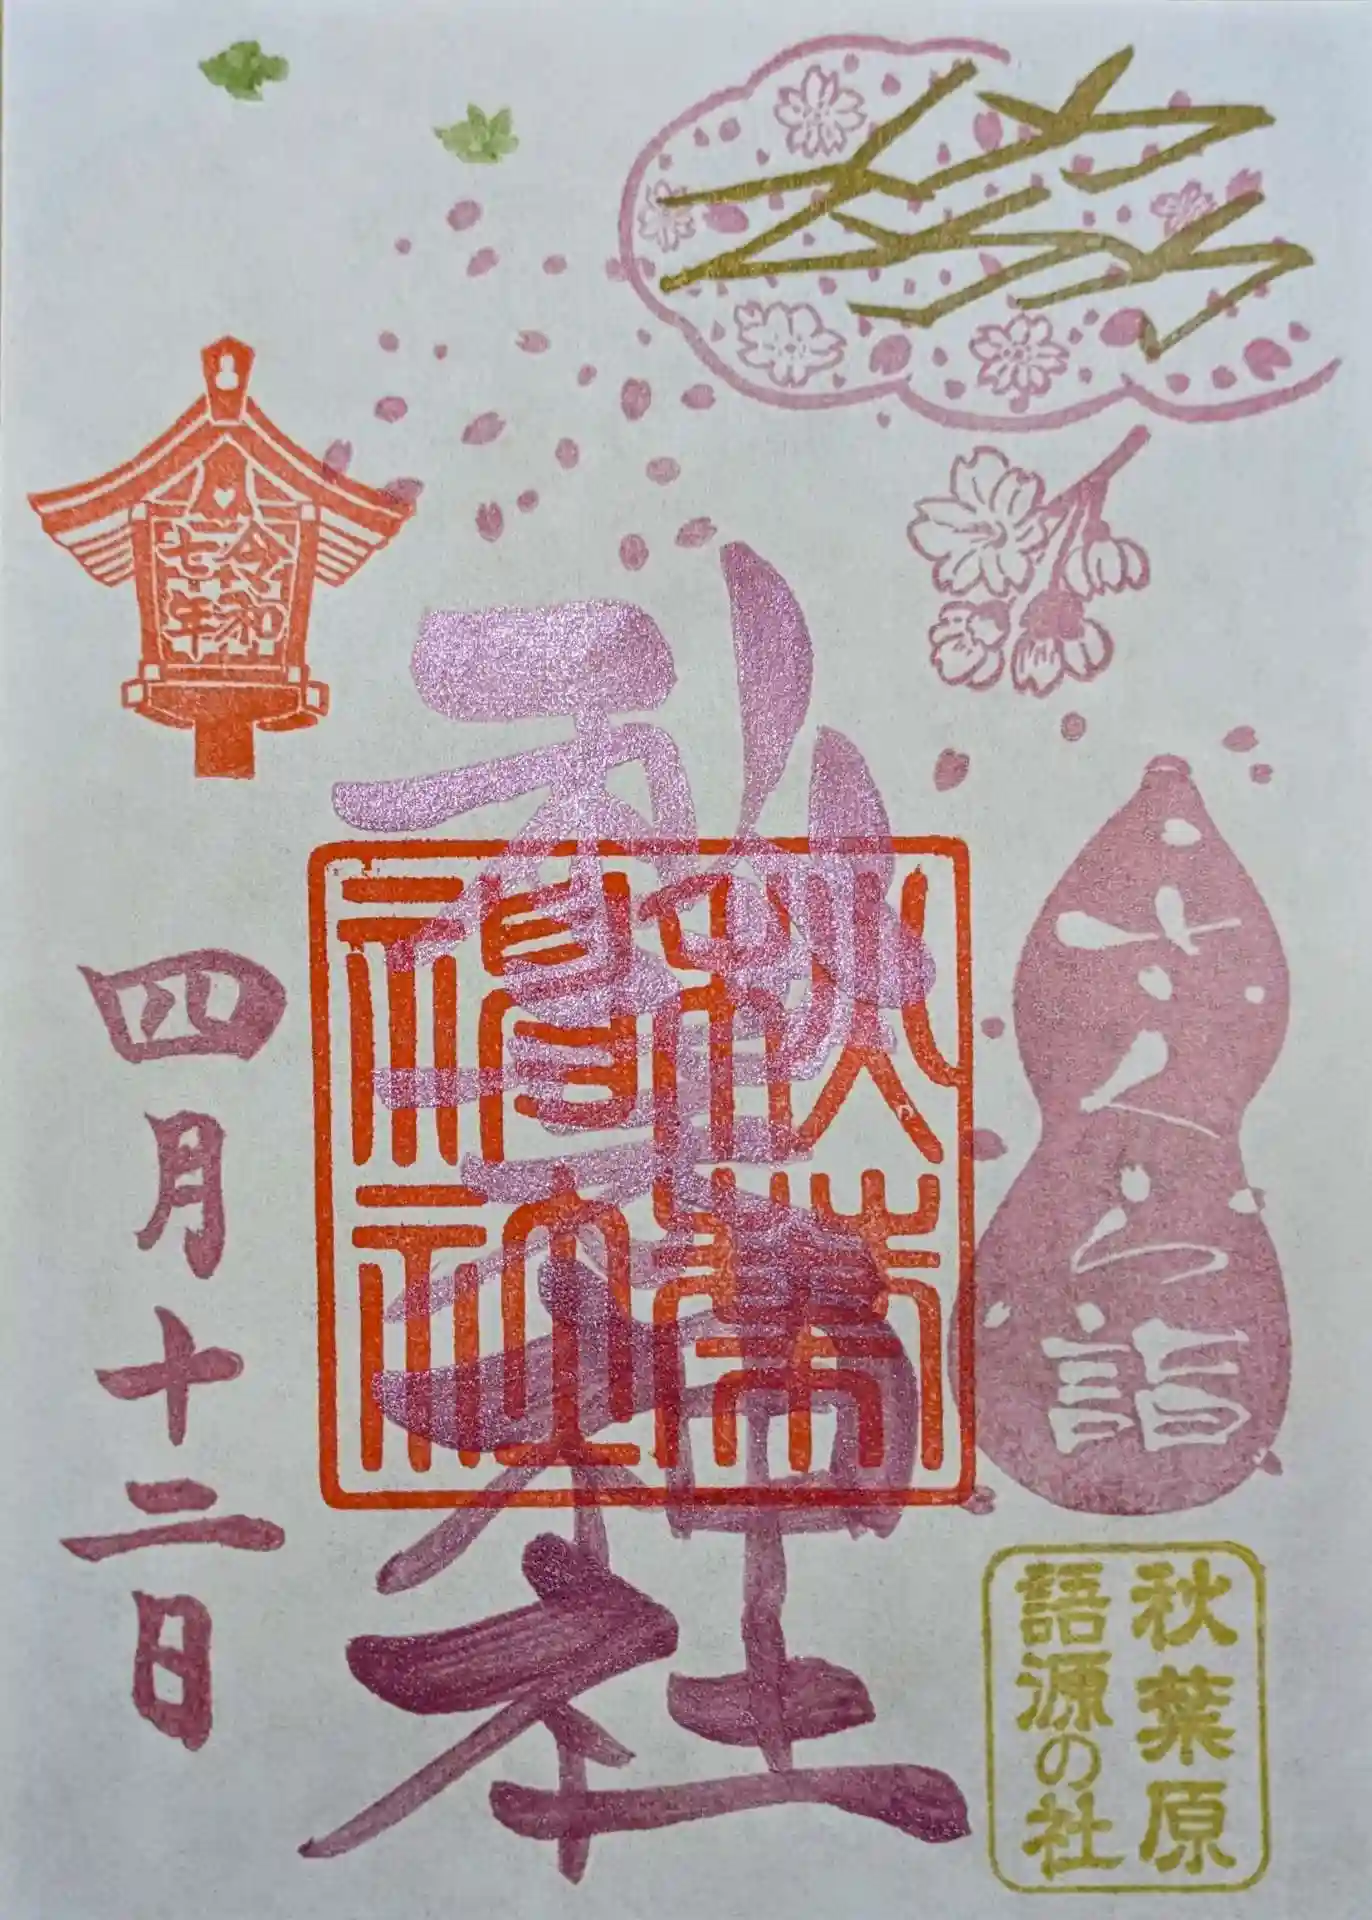 さくら詣
秋葉原
語源の社
秋葉神社
秋葉
神社
令和
七年
四月十二日